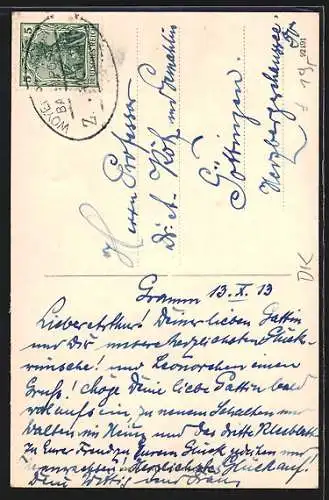 5 5
DEUTSCHES REICH
WOYE
BA
Z.
Herrn Professor
Dr. A. Köhl und Gemahlin
Göttingen.
Herzbergerchaussee
92191
DK
Gramm 13. X. 13
Lieber Arthur! Deiner lieben Gattin
und Dir unsere herzlichsten Glück-
wünsche! und Leonorchen einen
Gruß! Möge Deine liebe Gattin bald
wohlauf sein zu neuem Schalten und
Walten im Haus und das dritte Kleeblatt
zu Eurer Freude zu Eurem Glück
Herzlichstes Glückauf!
Dein und Frau